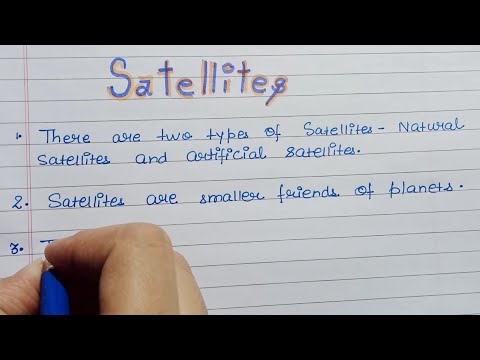 Satellites
1. There are two types of Satellites - Natural
Satellites and artificial satellites.
2. Satellites are smaller friends of planets.
3.